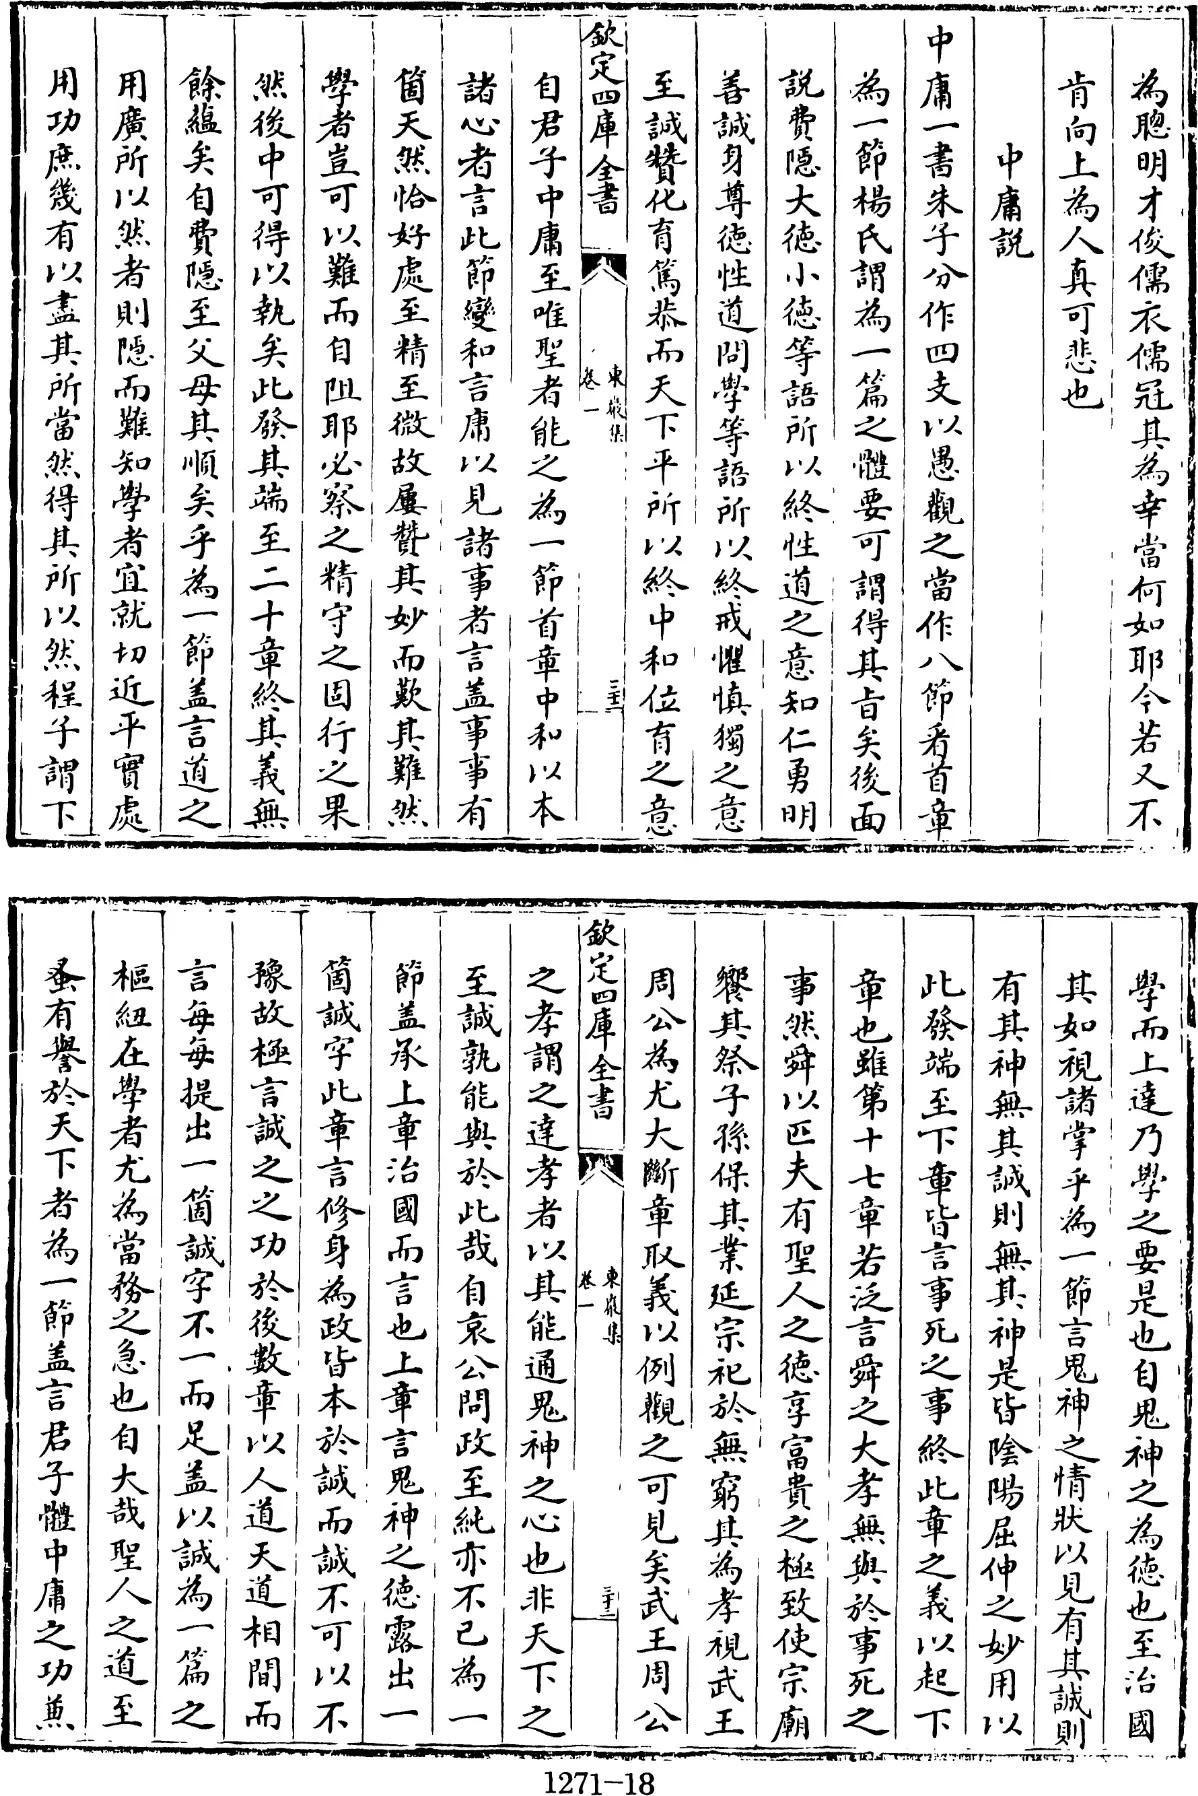 為聰明才俊儒衣儒冠其為幸當何如耶今若又不
肯向上為人真可悲也
中庸説
中庸一書朱子分作四支以愚觀之當作八節看首章
為一節楊氏謂為一篇之體要可謂得其旨矣後面
説費隠大徳小徳等語所以終性道之意知仁勇明
善誠身尊徳性道問學等語所以終戒懼慎獨之意
至誠贊化育篤恭而天下平所以終中和位育之意
欽定四庫全書
東巖集
卷一
三十二
自君子中庸至唯聖者能之為一節首章中和以本
諸心者言此節變和言庸以見諸事者言蓋事事有
箇天然恰好處至精至微故屢贊其妙而歎其難然
學者豈可以難而自阻耶必察之精守之固行之果
然後中可得以執矣此發其端至二十章終其義無
餘藴矣自費隠至父母其順矣乎為一節盖言道之
用廣所以然者則隠而難知學者宜就切近平實處
用功庶幾有以盡其所當然得其所以然程子謂下
學而上達乃學之要是也自鬼神之為徳也至治國
其如視諸掌乎為一節言鬼神之情狀以見有其誠則
有其神無其誠則無其神是皆陰陽屈伸之妙用以
此發端至下章皆言事死之事終此章之義以起下
章也雖第十七章若泛言舜之大孝無與於事死之
事然舜以匹夫有聖人之徳享富貴之極致使宗廟
饗其祭子孫保其業延宗祀於無窮其為孝視武王
周公為尤大斷章取義以例觀之可見矣武王周公
欽定四庫全書
東巖集
卷一
三十三
之孝謂之達孝者以其能通鬼神之心也非天下之
至誠孰能與於此哉自哀公問政至純亦不已為一
節盖承上章治國而言也上章言鬼神之徳露出一
箇誠字此章言修身為政皆本於誠而誠不可以不
豫故極言誠之之功於後數章以人道天道相間而
言每每提出一箇誠字不一而足盖以誠為一篇之
樞紐在學者尤為當務之急也自大哉聖人之道至
蚤有譽於天下者為一節盖言君子體中庸之功兼
1271-18